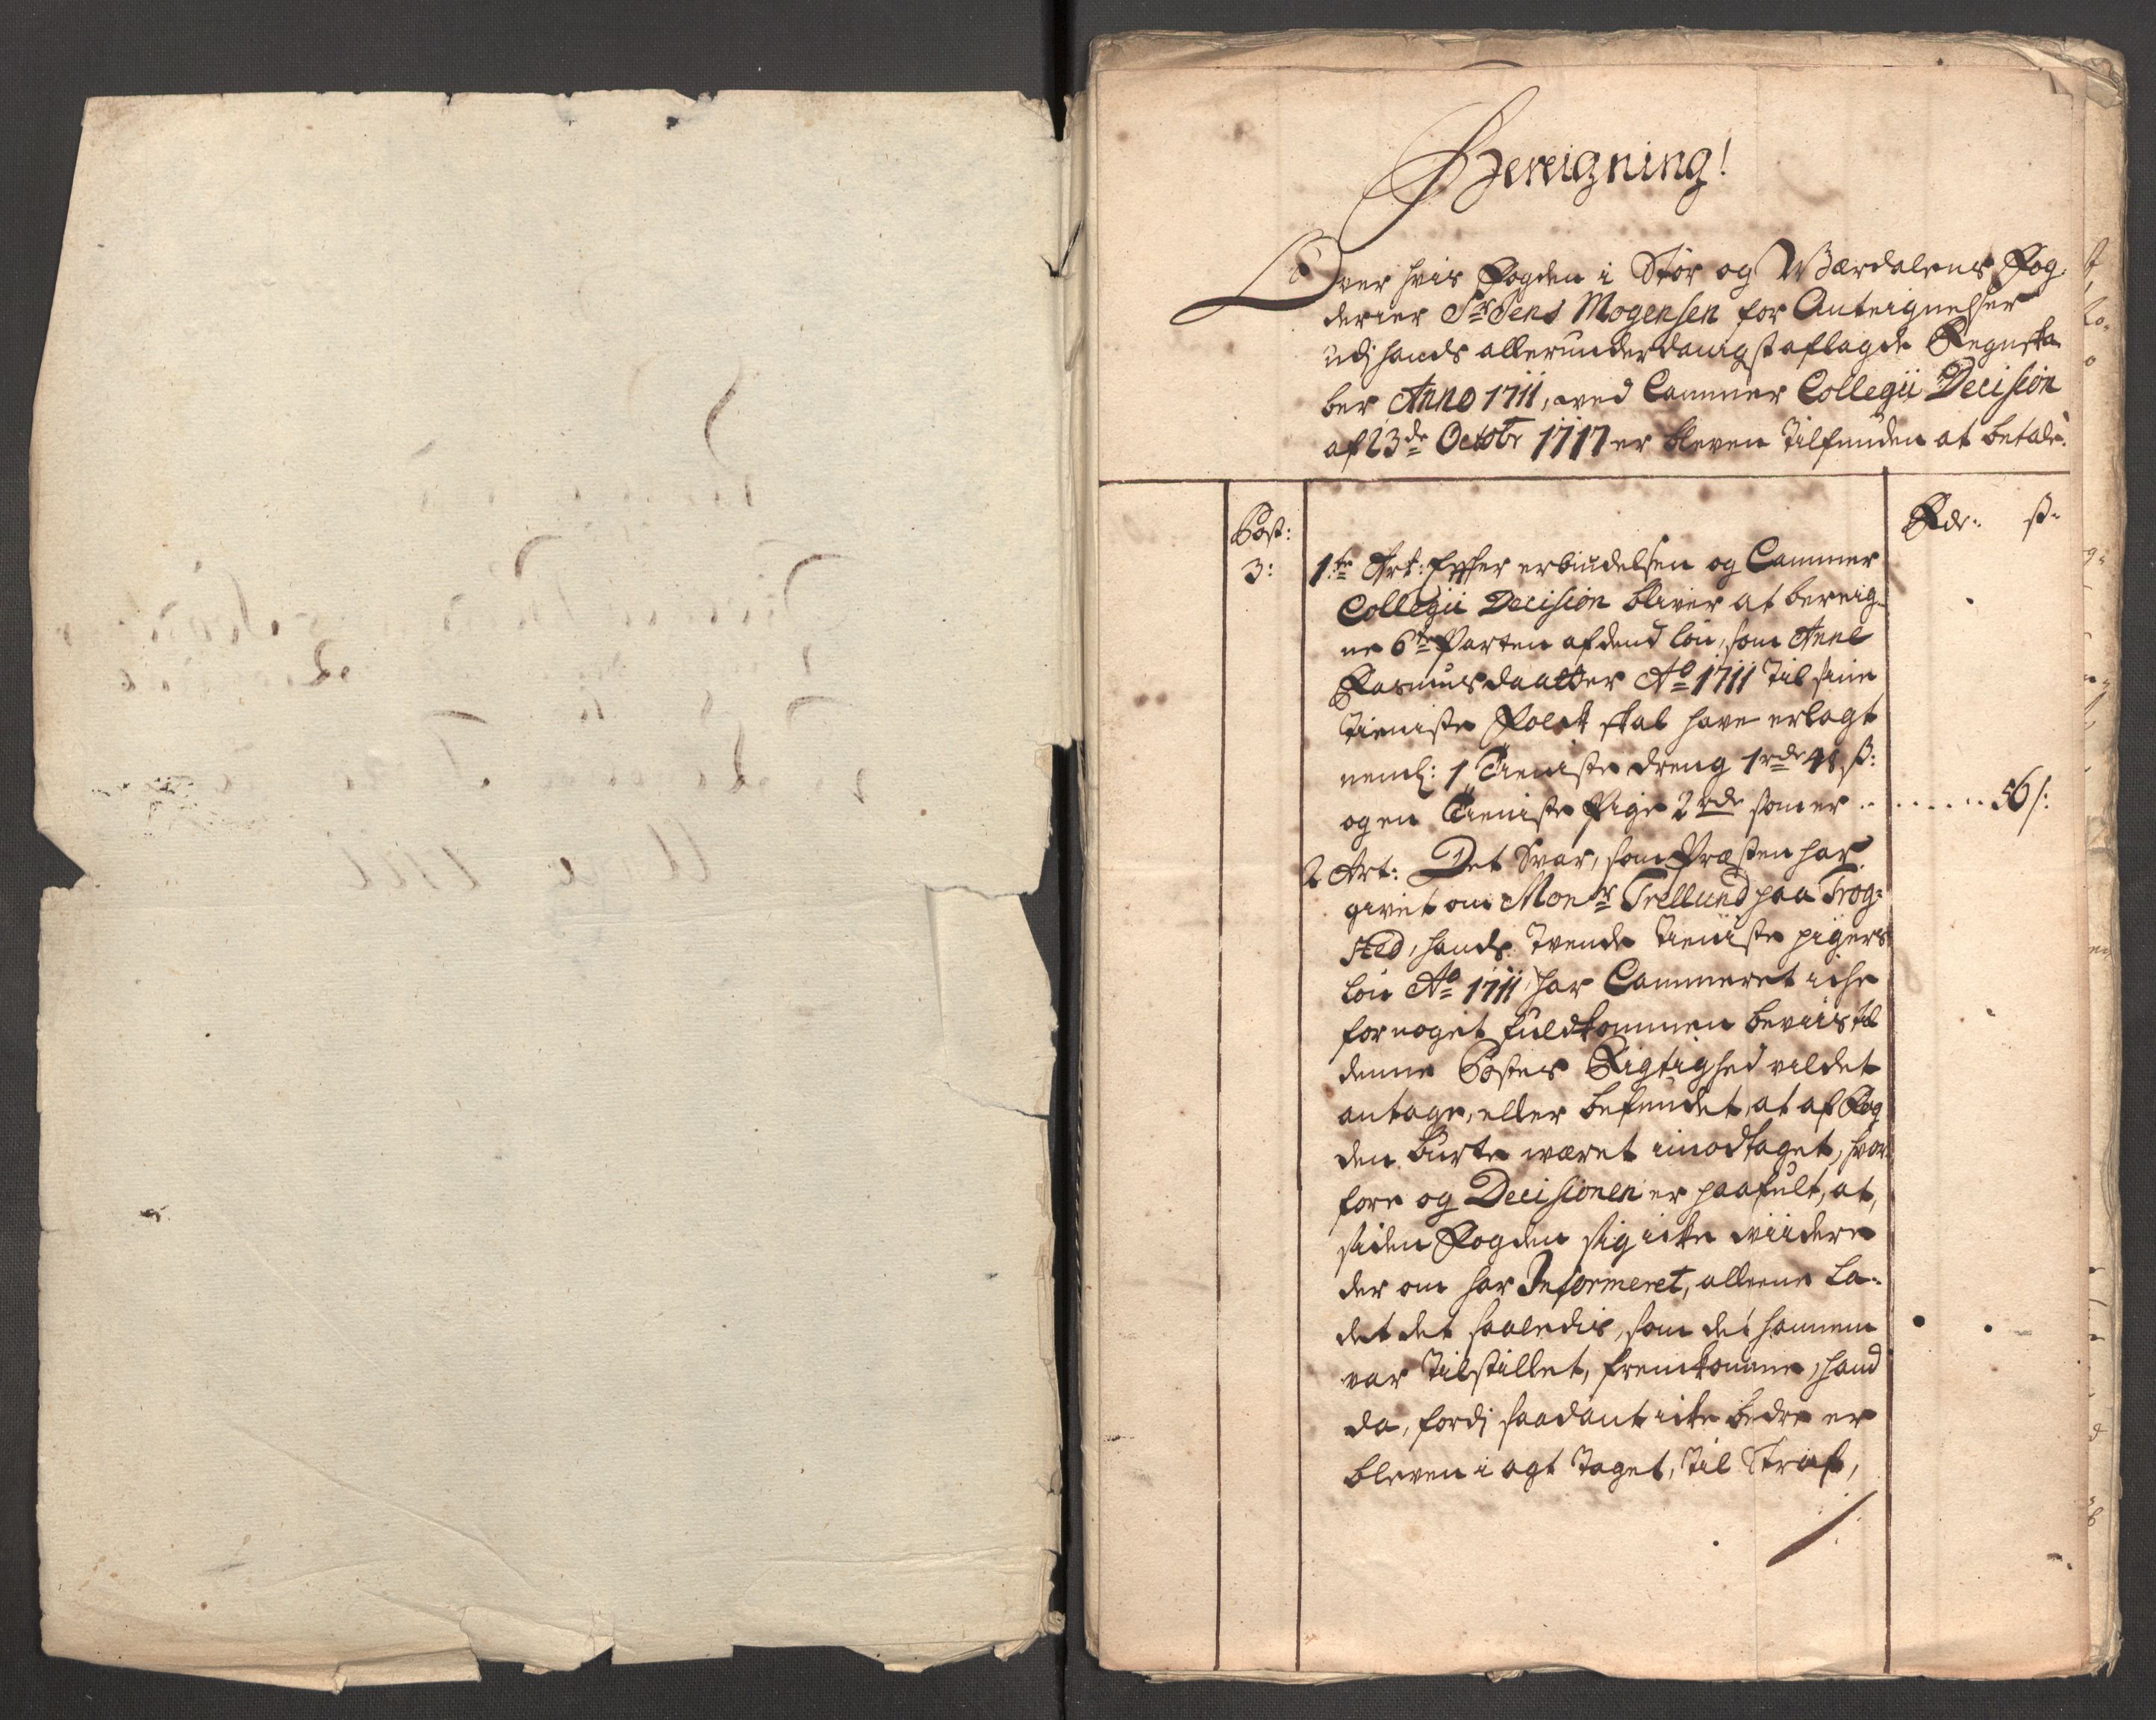 Bereigning!
Over hvis Fogden i Stør og Wærdalens Fog-
derier Sr Jens Mogensen for Anteignelser
udj hands allerunderdanigst aflagde Regnska
ber Anno 1711, ved Cammer Collegii Decision
af 23de Octobr 1717 er bleven tilfunden at betale.
Post: Rdr: ß:
3: 1te Art: Effter erbiudelsen og Cammer
Collegii Decision bliver at bereig-
ne 6te Parten af dend løn, som Anne
Rasmusdaatter Ao 1711 til sine
tieniste Folck skal have erlagt
neml: 1 tieniste dreng 1 rdr 48 ß:
og en tieniste Pige 2 rdr som er ........ 56 ß:
2 Art: Det Svar, som Præsten har
givet om Monsr Trellund paa Trog-
sted, hands tvende tieniste pigers
løn Ao 1711, har Cammeret iche
for noget fuldkommen beviis til
denne Postes Rigtighed vildet
antage, eller befundet at af Fog
den burte wæret imodtaget, hvor
fore og Decisionen er paafult, at,
siden Fogden sig icke viidere
der om har Informeret, alleene la-
det det saaledis, som det hannem
var tilstillet, fremkomme, hand
da, fordj saadant icke bedre er
bleven i agt taget, til Straf,